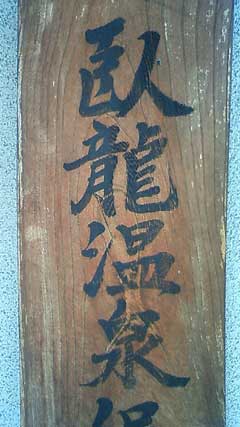 臥龍温泉